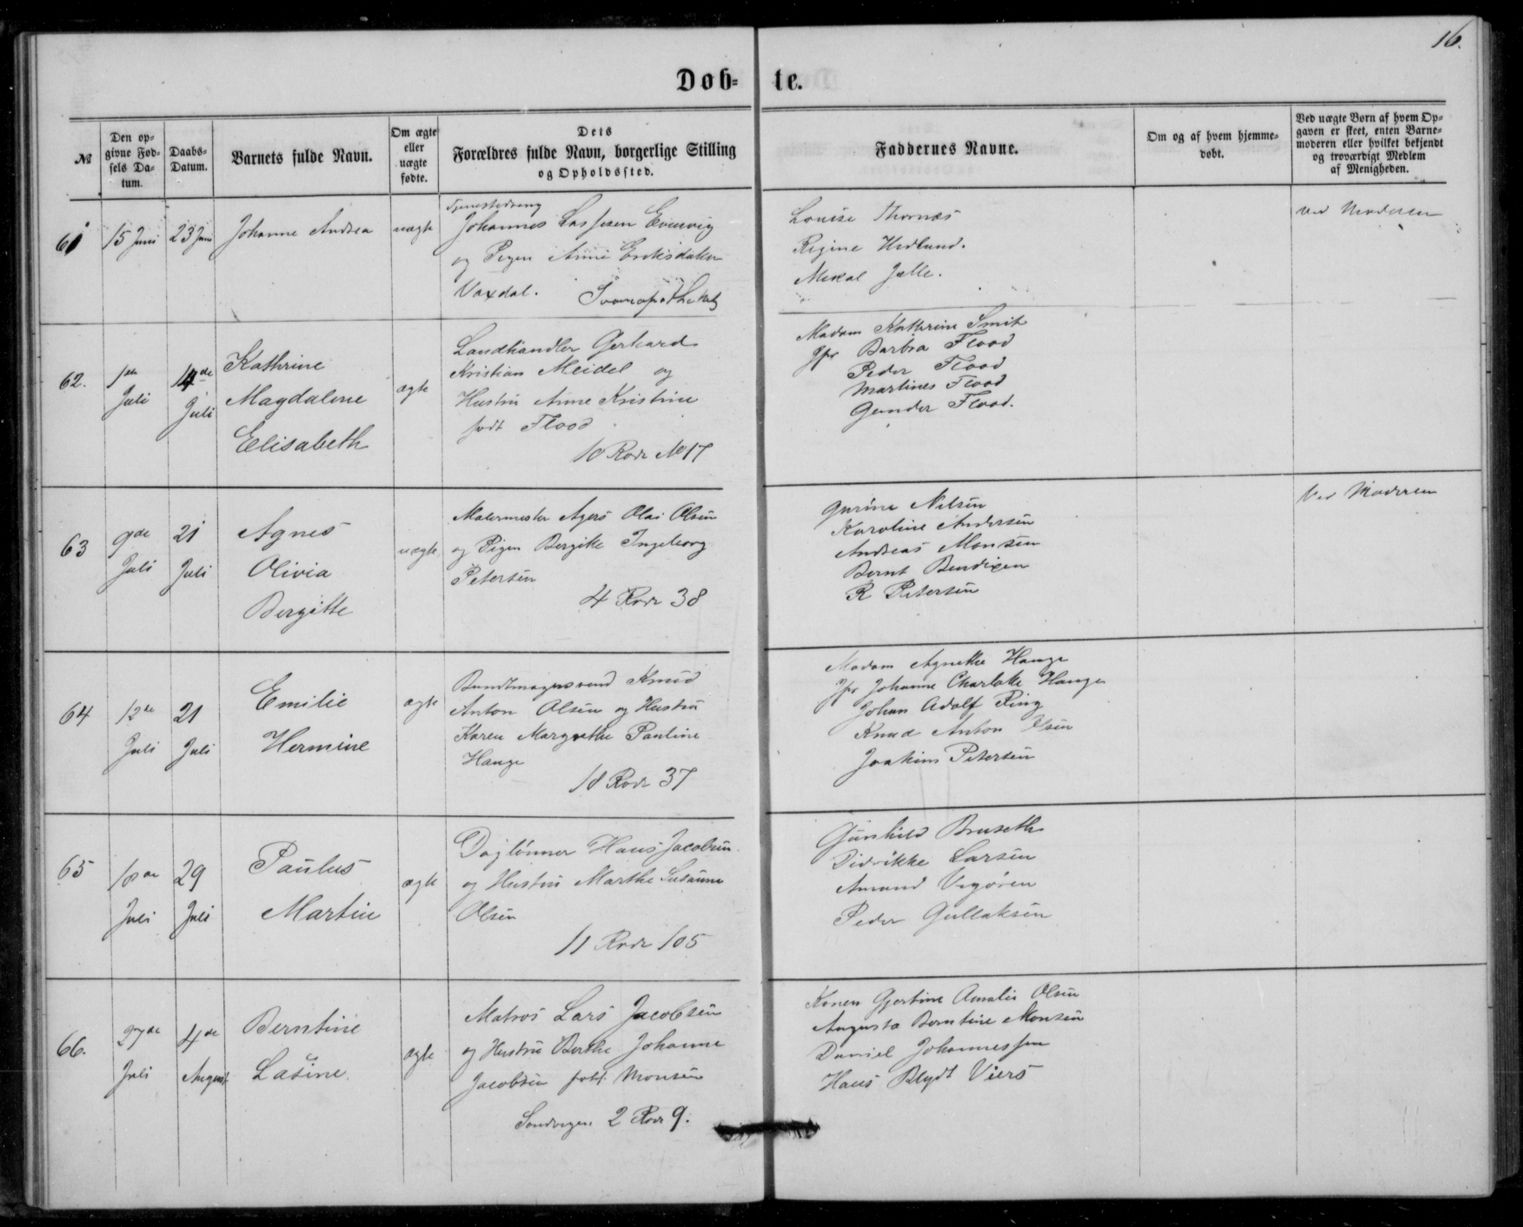 16.
Døb= te.
№
Den op=
givne Fød=
sels Da=
tum.
Daabs=
Datum.
Barnets fulde Navn.
Om ægte
eller
uægte
fødte.
Dets
Forældres fulde Navn, borgerlige Stilling
og Opholdssted.
Faddernes Navne.
Om og af hvem hjemme=
døbt.
Ved uægte Børn af hvem Op=
gaven er skeet, enten Barne=
moderen eller hvilket bekjendt
og troværdigt Medlem
af Menigheden.
61
15 Juni
23 Juni
Johanne Andrea
uægte
Tjenestedreng
Johannes Lassesen Evenvig
og Pigen Anne Eriksdatter
Vaxdal.
Louise Thornæs
Regine Hedlund.
Mikal Jælle.
ved Moderen
62.
1ste
Juli
14de
Juli
Kathrine
Magdalene
Elisabeth
ægte
Landhandler Gerhard
Kristian Meidel og
Hustru Anne Kristine
født Flood
10 Rode № 17
Madam Kathrine Smit
Jfr Barbra Flood
Peder Flood
Martines Flood
Gunder Flood.
63
9de
Juli
21
Juli
Agnes
Olivia
Bergitte
uægte
Malermester Agers Olai Olsen
og Pigen Bergitte Ingeborg
Petersen
4 Rode 38
Gurine Nilsen
Karoline Andersen
Andreas Monsen
Bernt Bendixen
R Petersen
Ved Moderen
64
12te
Juli
21
Juli
Emilie
Hermine
ægte
Bundtmagersvend Knud
Anton Olsen og Hustru
Karen Margrethe Pauline
Hauge
18 Rode 37
Madam Agnethe Hauge
Jfr Johanne Charlotte Hauge
Johan Adolf Ring
Knud Anton Olsen
Joakim Petersen
65
18de
Juli
29
Juli
Paulus
Martin
ægte
Daglønner Hans Jacobsen
og Hustru Marthe Susanne
Olsen
11 Rode 105
Gunhild Bruseth
Didrikke Larsen
Amund Vigøren
Peder Gullaksen
66.
27de
Juli
4de
August
Berntine
Lasine.
ægte
Matros Lars Jacobsen
og Hustru Berthe Johanne
Jacobsen født Monsen
Sandvigen 2 Rode 9.
Konen Gjertine Amalie Olsen
Augusta Berntine Monsen
Daniel Johannessen
Hans Blydt Viers